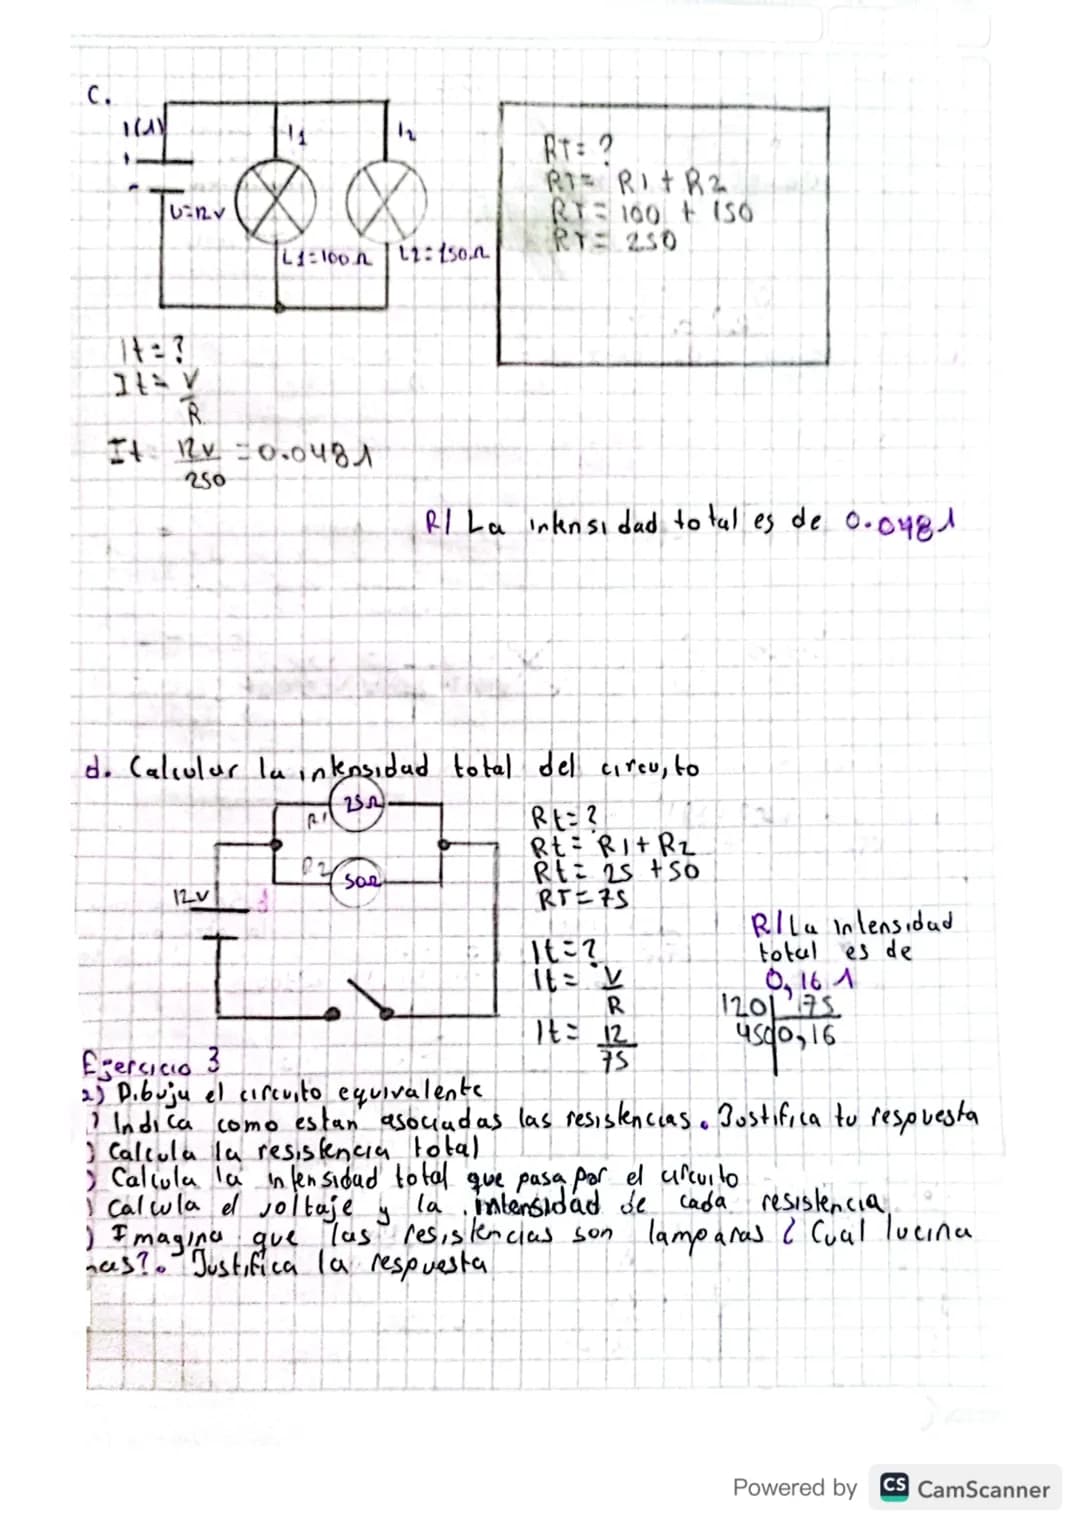 C.
I(A)
I1
I2
+
-
U=12V
L1=100Ω
L2=150Ω
RT= ?
RT= R1 + R2
RT= 100 + 150
RT= 250
It=?
It= V
R
It 12v = 0.048A
250
R/ La intensidad total es de 0.048A
d. Calcular la intensidad total del circuito
25Ω
R1
R2
50Ω
12V
Rt= ?
Rt= R1+R2
Rt= 25 +50
RT=75
It=?
It= V
R
It= 12
75
R/La intensidad
total es de
0,16 A
120 75
450 0,16
Ejercicio 3
2) Dibuja el circuito equivalente
) Indica como estan asociadas las resistencias. Justifica tu respuesta
) Calcula la resistencia total
) Calcula la intensidad total que pasa por el circuito
) Calcula el voltaje y la intensidad de cada resistencia
) Imagina que las resistencias son lamparas ¿ Cual lucina
mas?. Justifica la respuesta
Powered by CS CamScanner